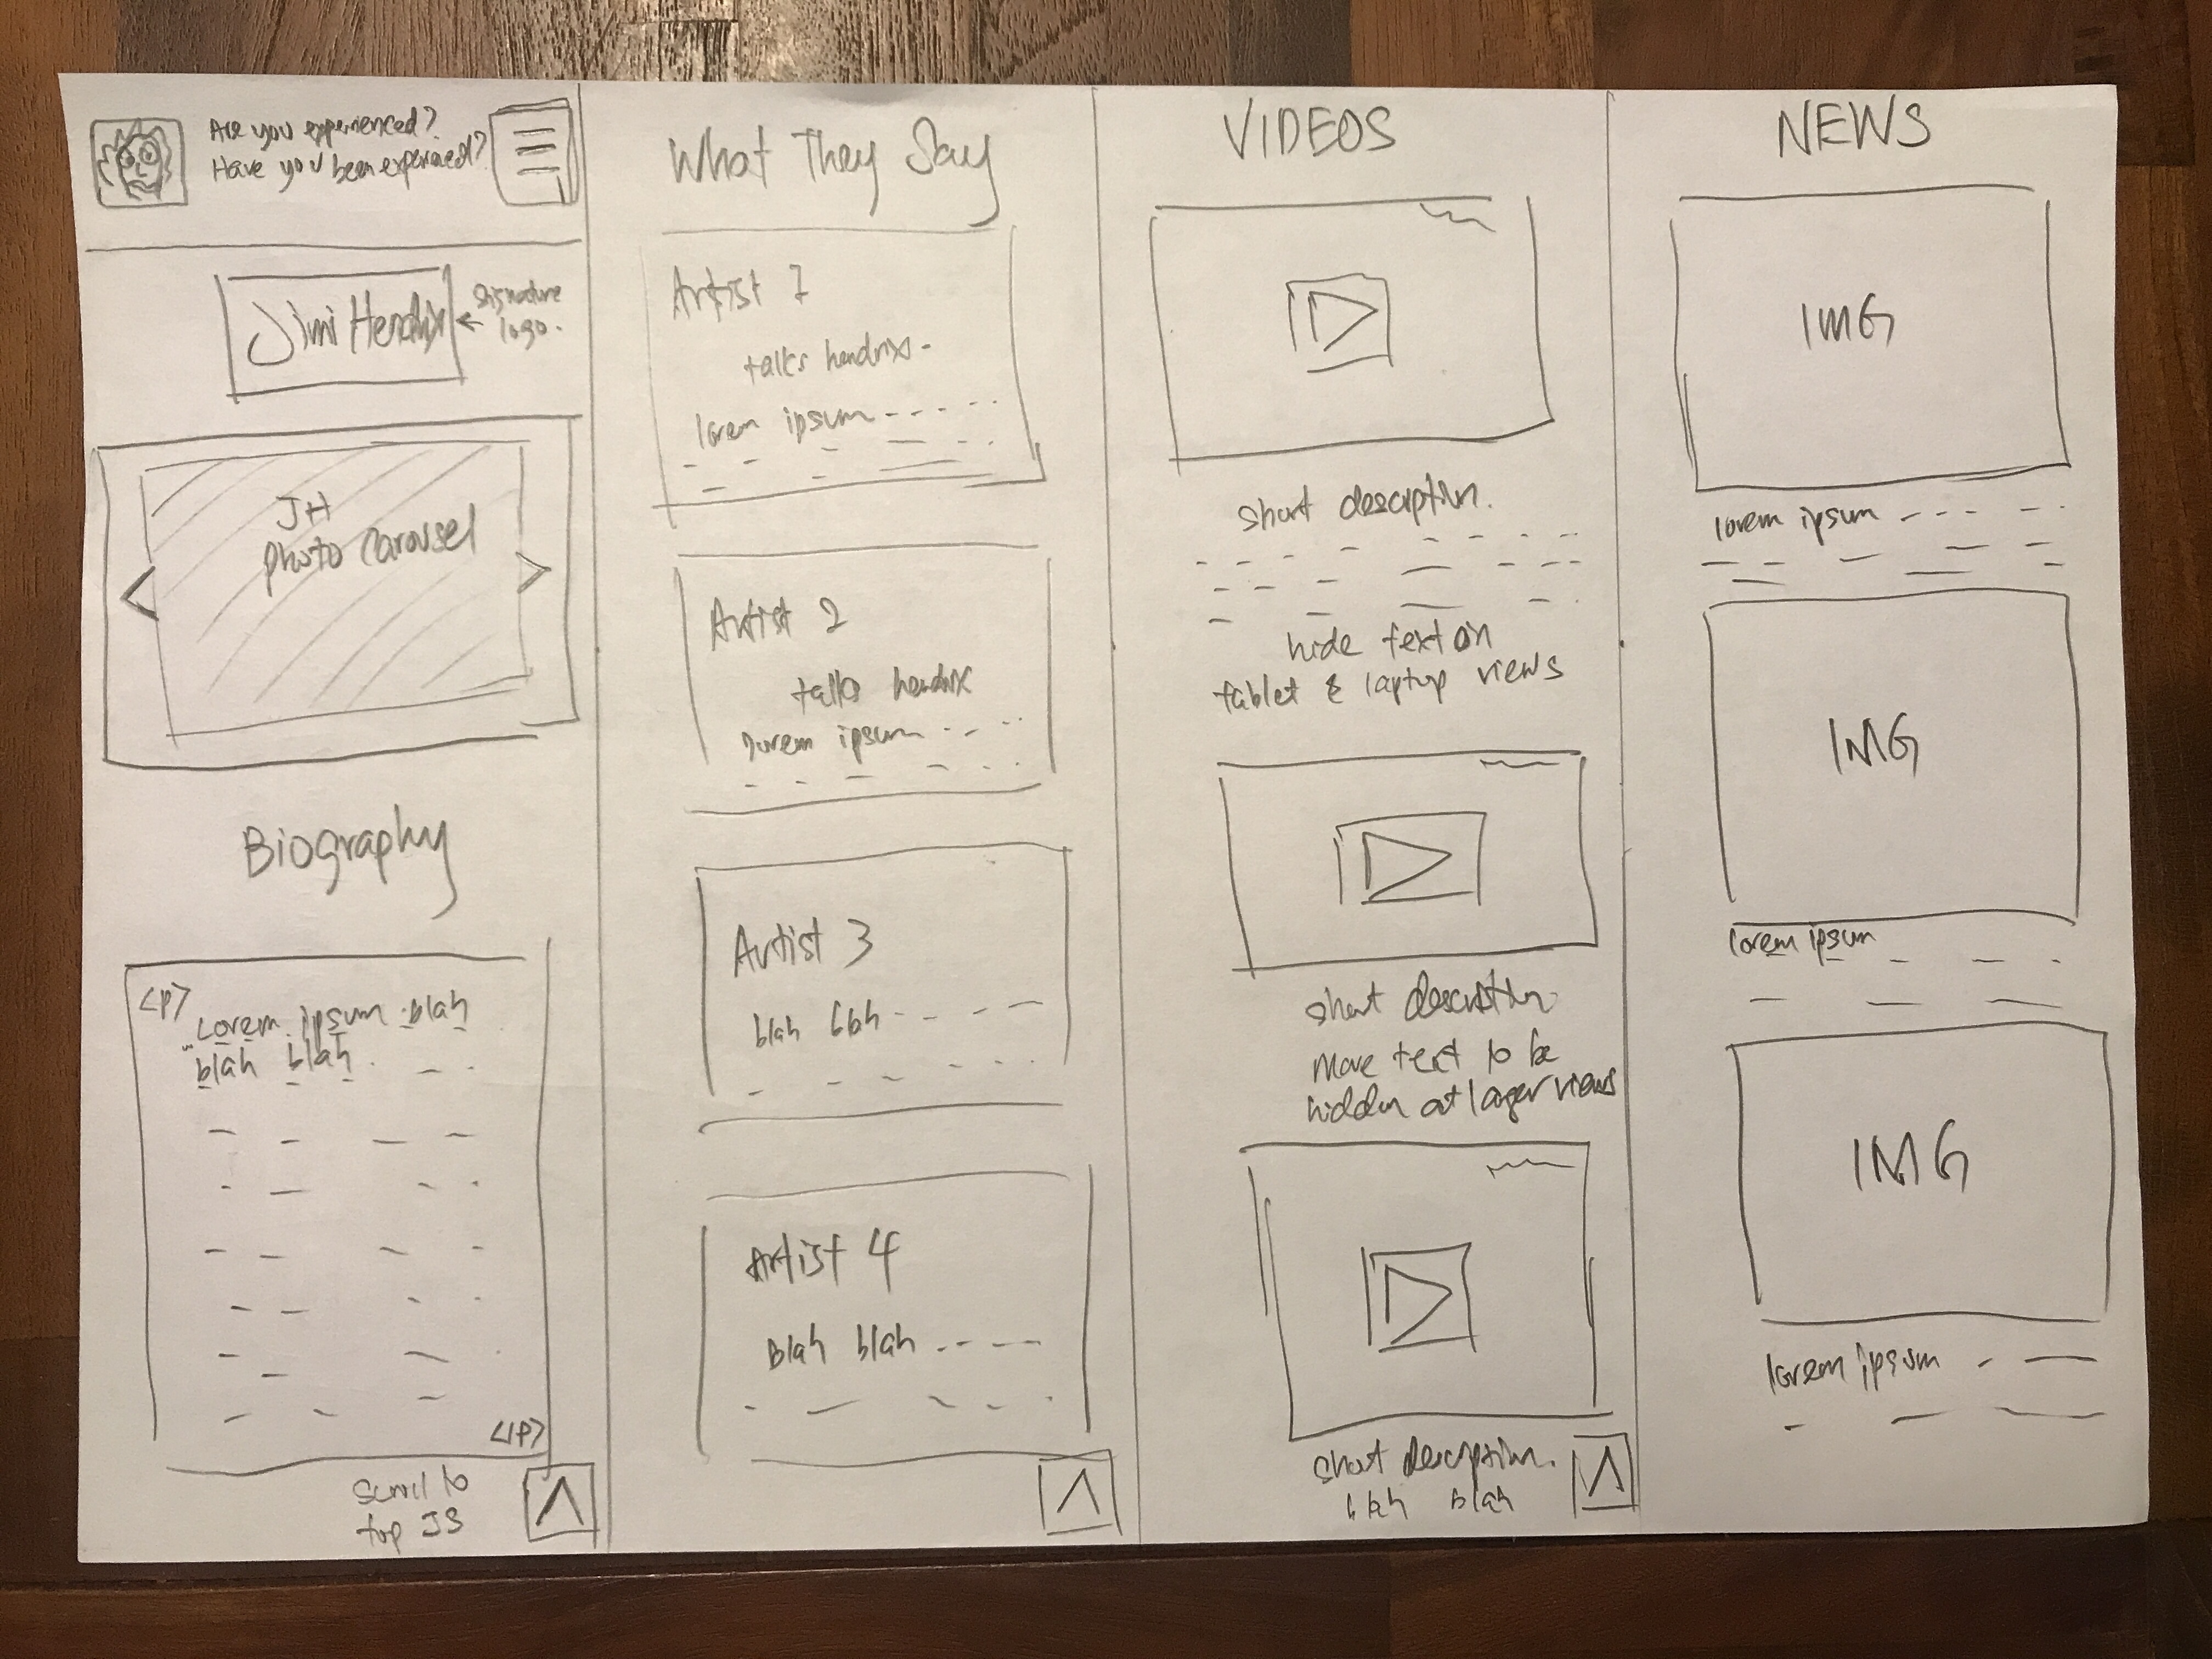 Are you experienced?
Have you been experienced?
Jimi Hendrix
← signature
logo.
JH
photo carousel
<
>
Biography
<p>
Lorem ipsum blah
blah blah
</p>
Scroll to
top JS
What They Say
Artist 1
talks hendrix
lorem ipsum
Artist 2
talks hendrix
lorem ipsum
Artist 3
blah blah
Artist 4
Blah blah
VIDEOS
short description.
hide text on
tablet & laptop views
short description
more text to be
hidden at larger views
short description.
blah blah
NEWS
IMG
lorem ipsum
IMG
lorem ipsum
IMG
lorem ipsum